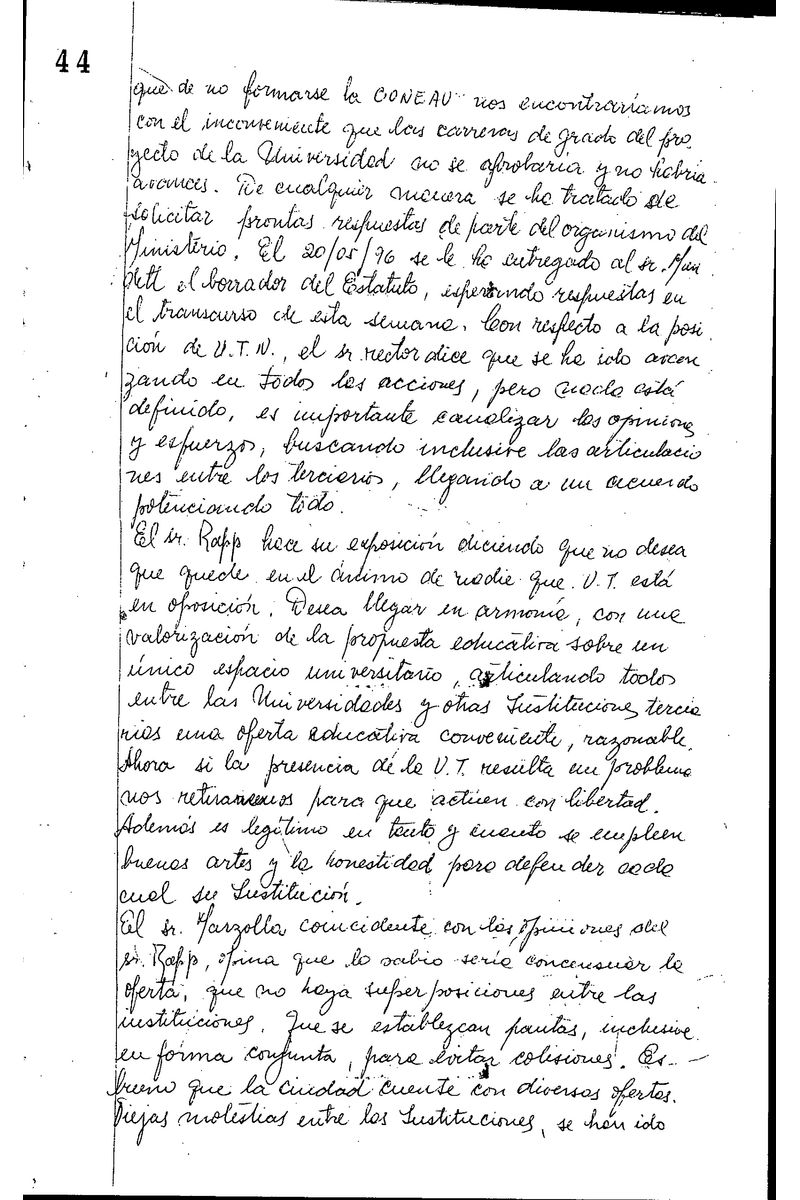 44
que de no formarse la CONEAU nos encontraríamos
con el inconveniente que las carreras de grado del pro-
yecto de la Universidad no se aprobaría y no habría
avances. De cualquier manera se ha tratado de
solicitar prontas respuestas de parte del organismo del
Ministerio. El 20/05/96 se le ha entregado al sr.
el borrador del Estatuto, esperando respuestas en
el transcurso de esta semana. Con respecto a la posi
ción de U.T.N., el sr rector dice que se ha ido avan
zando en todas las acciones, pero nada está
definido, es importante canalizar las opiniones
y esfuerzos, buscando inclusive las articulacio
nes entre los terciarios, llegando a un acuerdo
potenciando todo.
El sr. Rapp hace su exposición diciendo que no desea
que quede en el ánimo de nadie que U.T. está
en oposición. Desea llegar en armonía, con una
valorización de la propuesta educativa sobre un
único espacio universitario, articulando todos
entre las Universidades y otras Instituciones tercia
rias una oferta educativa conveniente, razonable.
Ahora si la presencia de la U.T. resulta un problema
nos retiraremos para que actúen con libertad.
Además es legítimo en tanto y cuanto se empleen
buenas artes y la honestidad para defender cada
cual su Institución.
El sr. Marzolla coincidente con las opiniones del
sr. Rapp, opina que lo sabio sería concensuar la
oferta, que no haya superposiciones entre las
instituciones. Que se establezcan pautas, inclusive
en forma conjunta, para evitar colisiones. Es
bueno que la ciudad cuente con diversas ofertas.
Viejas molestias entre las Instituciones, se han ido